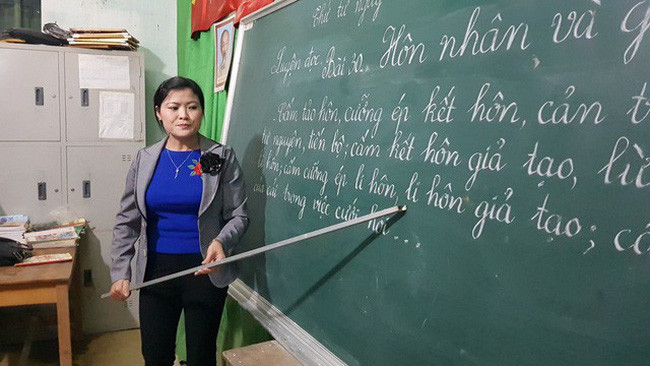 Thứ tư ngày
Luyện đọc: Bài 30. Hôn nhân và g
Cấm tảo hôn, cưỡng ép kết hôn, cản t
tự nguyện, tiến bộ; cấm kết hôn giả tạo, lừ
li hôn; cấm cưỡng ép li hôn, li hôn giả tạo; cả
của cải trong việc cưới hỏi ...